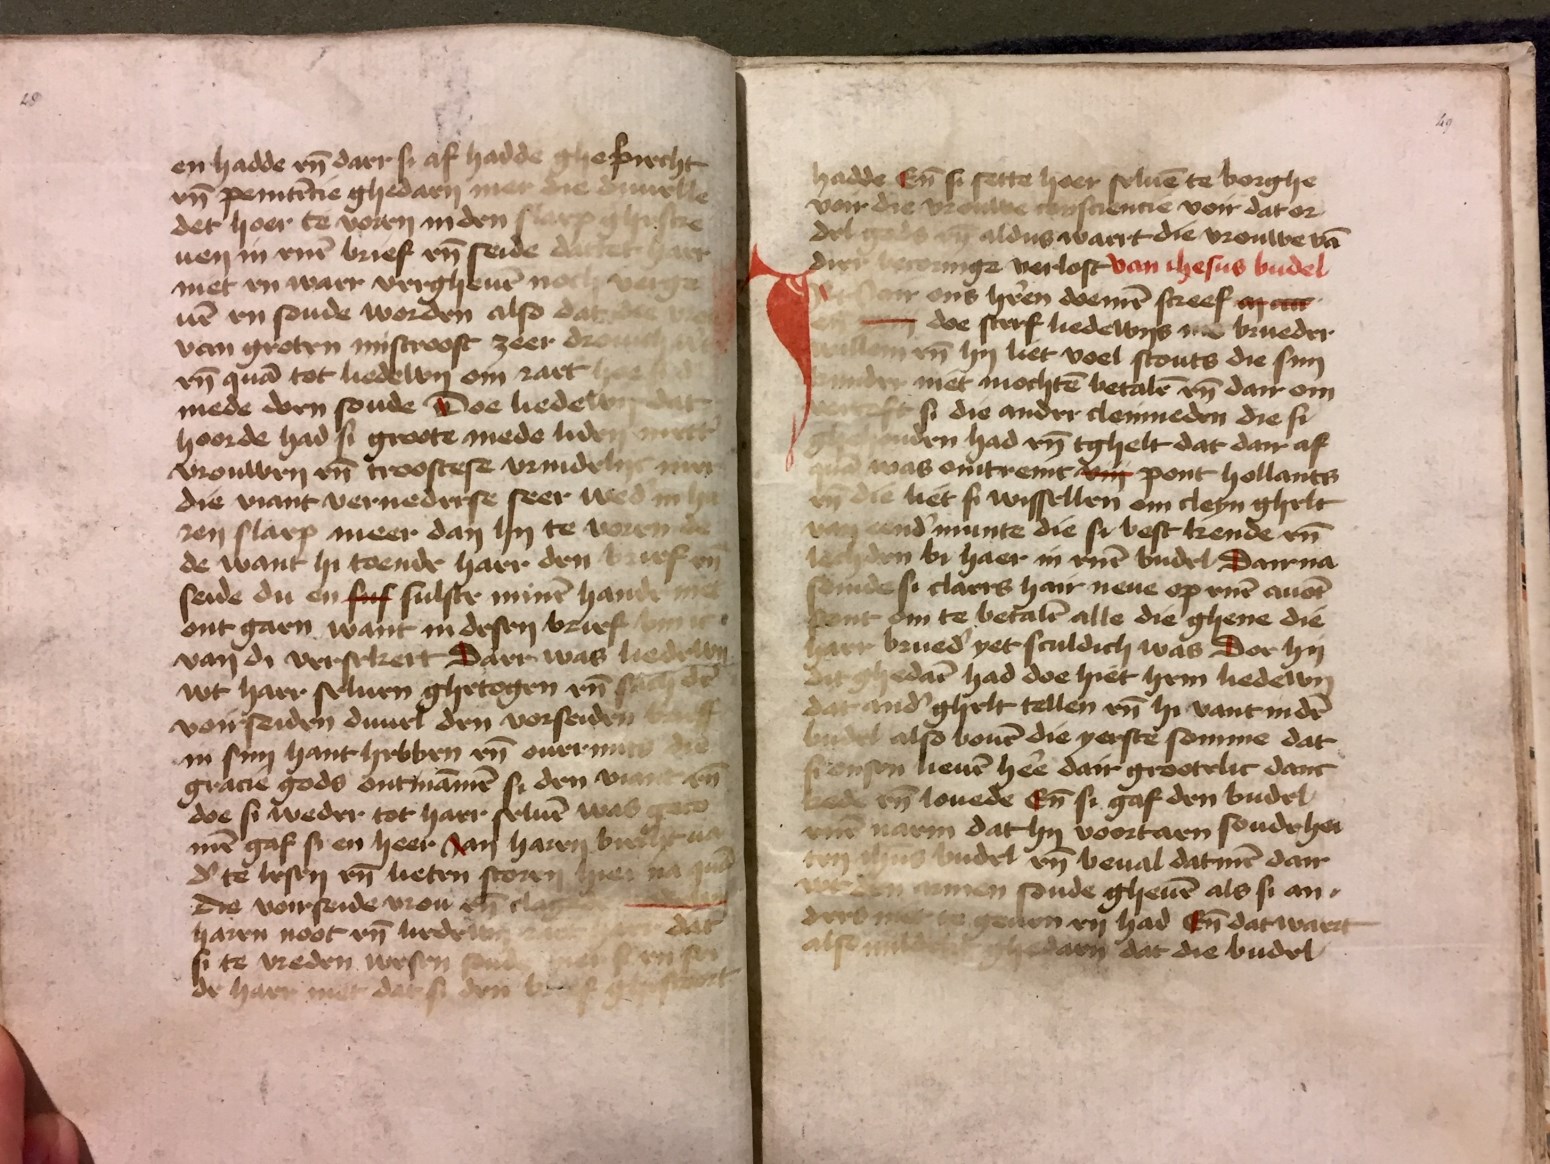 48
en hadde eñ daer si af hadde ghebiecht
eñ penitēcie ghedaen mer die duuelle
det hoer te voren in den slaep ghescre
uen in enē brief eñ seide dattet haer
niet en waer vergheuē noch verge
uē en soude worden also dat die vro
van groten mistroost zeer drouich
eñ quā tot liedewij om raet
mede doen soude Doe liedewij dat
hoorde had si groote mede liden mett
vrouwen eñ troostese vrindelijc mer
die viant vernederse seer wed in ha
ren slaep meer dan hij te voren de
de want hi toende haer den brief eñ
seide du en sulste minē hande niet
ont gaen want in desen brief bin ic
van di versekert Daer was liedewij
wt haer seluen ghetogen eñ sach dē
voirseiden duuel den vorseiden brief
in sijn hant hebben eñ ouermits die
gracie gods ontnāmē si den viant eñ
doe si weder tot haer seluē was geco
mē gaf si en heer Jan haren biecht va
d te lesen eñ lieten scoren hier na quā
die voirseide vrou eñ
haren noot eñ liedewij dat
si te vreden wesen soude
de haer niet dat si den brief ghescoert
49
hadde Eñ si sette hoer seluē te borghe
voir die vrouwe consciencie voir dat or
del gods eñ aldus waert die vrouwe vā
dier becoringe verlost van ihesus budel
ons hrēn doemē screef
doe sterf liedewijs brueder
willem eñ hij liet voel scouts die sijn
kinder niet mochtē betalē eñ dair om
vercoft si die ander cleinneden die si
ghehouden had eñ tghelt dat dair af
quā was omtrent viij pont hollants
eñ die liet si wissellen om cleyn ghelt
van eend munte die si best kende eñ
lechden bi haer in enē budel Dairna
sonde si claers hair neue op enē auōt
om te betalē alle die ghene die
haer brued yet sculdich was Doe hij
dit ghedaē had doe hiet hem liedewij
dat and ghelt tellen eñ hi vant in dē
budel also bouē die yerste somme dat
si onsen lieuē hēe dair grootelic danc
kede eñ louede Eñ si gaf den budel
enē naem dat hij voortaen soude hei
ten ihūs budel eñ beual datmē dair
wt den armen soude gheuē als si an
ders niet te geuen en had Eñ dat waert
also mildelic ghedaen dat die budel